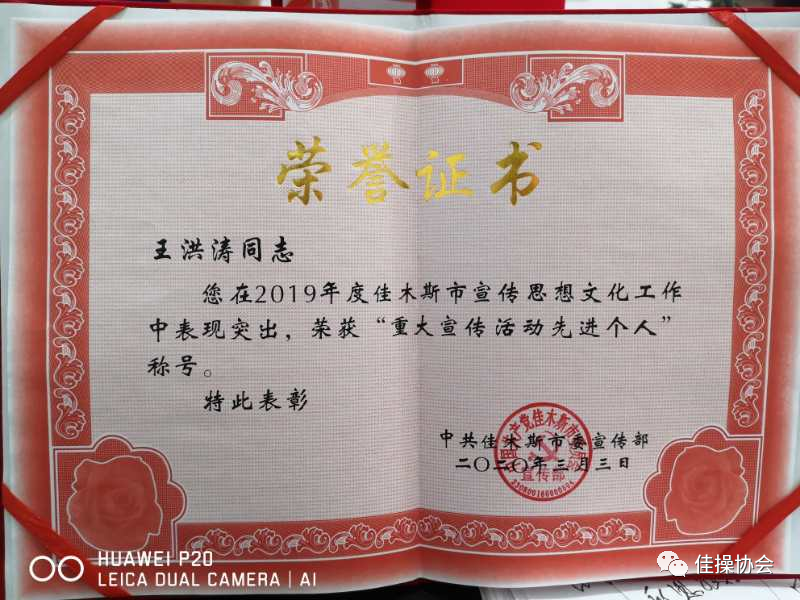 荣誉证书
王洪涛同志
您在2019年度佳木斯市宣传思想文化工作
中表现突出，荣获“重大宣传活动先进个人”
称号。
特此表彰
中共佳木斯市委宣传部
二〇二〇年三月三日
宣传部
HUAWEI P20
LEICA DUAL CAMERA | AI
佳操协会